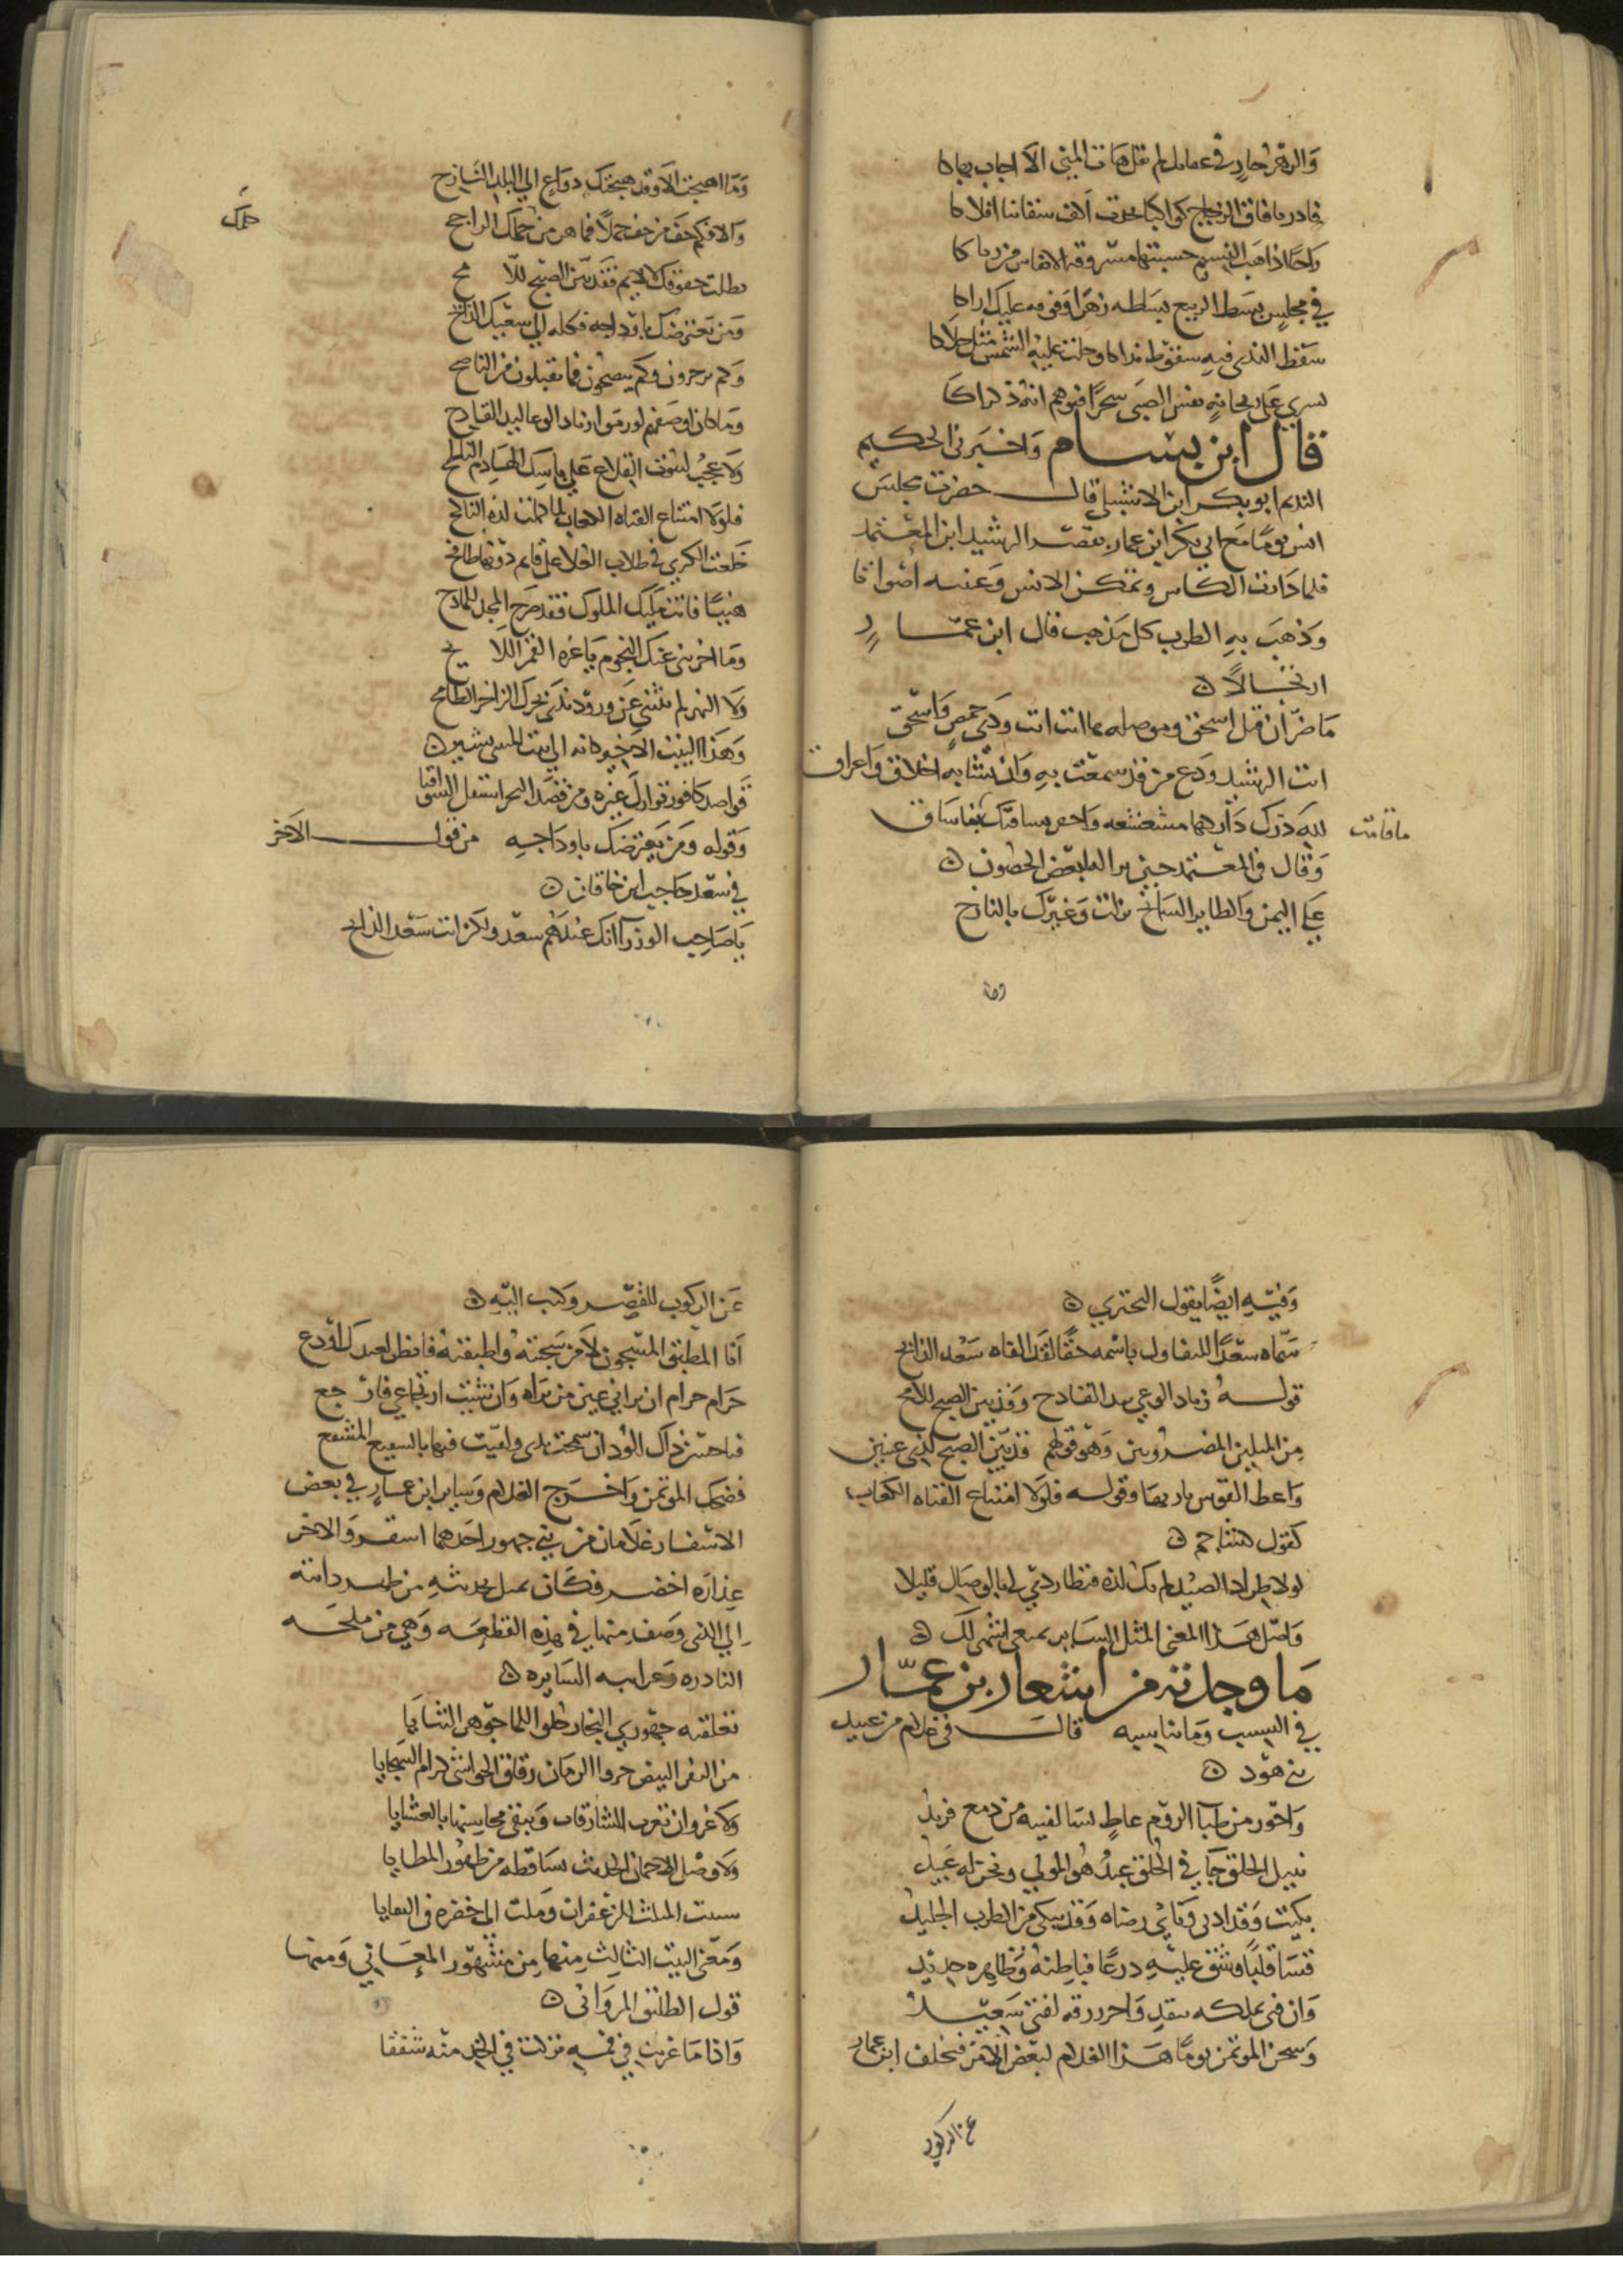 والدهر جار في عنانك لم تقل هات المنى الا اجاب بهاكا
فادر مافاق الزجاج كواكبا
واحثا اذا هب النسيم حسبتها مسروقة الانفاس من رياكا
في مجلس بسط الربيع بساطه زهرا
سقط الندى فيه سقوط نداكا وجلت عليه الشمس مثل حلاكا
يسري على ريحانه نفس الصبى سحرا فتوهم انه ذكراكا
قال ابن بسام واخبرني الحكيم
النديم ابو بكر ابن الاشبيلي قال حضرت مجلس
انس يوما مع ابي بكر ابن عمار بقصر الرشيد ابن المعتمد
فلما دارت الكاس وتمكن الانس وغنيت اصواتا
وذهب به الطرب كل مذهب قال ابن عمار
ارتجالا
ما ضر ان قيل اسحق وموصله ها انت انت وذي حمص واسحق
انت الرشيد ودع من قد سمعت به وان تشابه اخلاق واعراق
لله درك داركها مشعشعه واحضر بساقيك
ما قامت
وقال في المعتمد حين نزل بعض الحصون
على اليمن والطاير السانح نزلت وغيرك بالنازح
وما
وما اهتجت الا وقد هيجتك دواع الى البلد النازح
والا فكم خف من خف حملا فما هز من حملك الراجح
حلمك
بطلت حقوقك لا لايم فقد بين الصبح للا مح
ومن تعترضك باوداجه فكله الى سعيك الذابح
وكم يزجرون وكم ينصحون فما تقبلون من الناصح
وما كان اوصفهم لو رموا زناد الوغا ليد القادح
ولا عجب لشوف القلاع على باسك الهادم
فلولا امتناع الفتاه الكعاب لما كملت لذة الناكح
خلعت الكرى في طلاب العلا على قايم دونها طامح
هنيا فانت مليك الملوك فقد صرح المجد للمادح
وما اخرتني عنك النجوم يا غرة القمر اللا يح
ولا النهر لم تثنني عن ورود ندى بحرك الزاخر الطامح
وهذا البيت الاخير كانه الى بيت المتنبي يشير
قواصد كافور توارك غيره ومن قصد البحر استقل السواقيا
وقوله ومن يعترضك باوداجه من قول الاخر
في سعد حاجب ابن خاقان
يا صاحب الوزرا انك عندهم سعد ولكن انت سعد الذابح
وفيه ايضا يقول البحتري
سماه سعدا للتفاول باسمه حقا لقد القاه سعد الذابح
قوله زناد الوغي ليد القادح وقد بين الصبح للامح
من المثلين المضروبين وهو قولهم قد بين الصبح لذي عينين
واعط القوس باريها وقوله فلولا امتناع الفتاه الكعاب
كقول كشاجم
لولا طراد الصيد لم تك لذه فتطاردي لي بالوصال قليلا
واصل هذا المعنى المثل الساير تمنعي اشهى لك
ما وجدته من اشعار بن عمار
في النسيب وما يناسبه قال في غلام من عبيد
بن هود
واحور من ظبا الروم عاط بسالفيه من دمع فريد
نبيل الخلق جافي الخلق عبد هو المولى ونحن له عبيد
بكيت وقد دنى وناى رضاه وقد يبكي من الطرب الجليد
قسا قلبا وشق عليه درعا فباطنه وظاهره حديد
وان فتى تملكه بنقد واحرز رقه لفتى سعيد
وسجن الموتمن يوما هذا الغلام لبعض الامر فتخلف ابن عمار
عن الركوب
عن الركوب للقصر وكتب اليه
انا المطبق المسجون لا من سجنته واطبقته فانظر لعبدك او دع
حرام حرام ان يراني عين من يراه وان شيت ارتجاعي فار جع
فضحك الموتمن واخرج الغلام وساير ابن عمار في بعض
الاسفار غلامان من بني جهور احدهما اشقر والاخر
عذاره اخضر فكان يميل بحديثه من ظهر دابته
الى الذي وصف منها في هذه القطعه وهي من ملحه
النادره وغرايبه السايره
تعلقته جهوري النجار حلو اللما جوهري الثنايا
من النفر البيض جروا الزمان رقاق الحواشي كرام السجايا
ولا غرو ان تغرب الشارقات وتبقى محاسنها بالعشايا
ولا وصل الا جمان الحديث نساقطه من ظهور المطايا
شنيت المثلث للزعفران وملت الى خضره في البقايا
ومعنى البيت الثالث منها من مشهور المعاني ومنها
قول الطليق المرواني
واذا ما غربت في فمه تركت في الخد منه شفقا